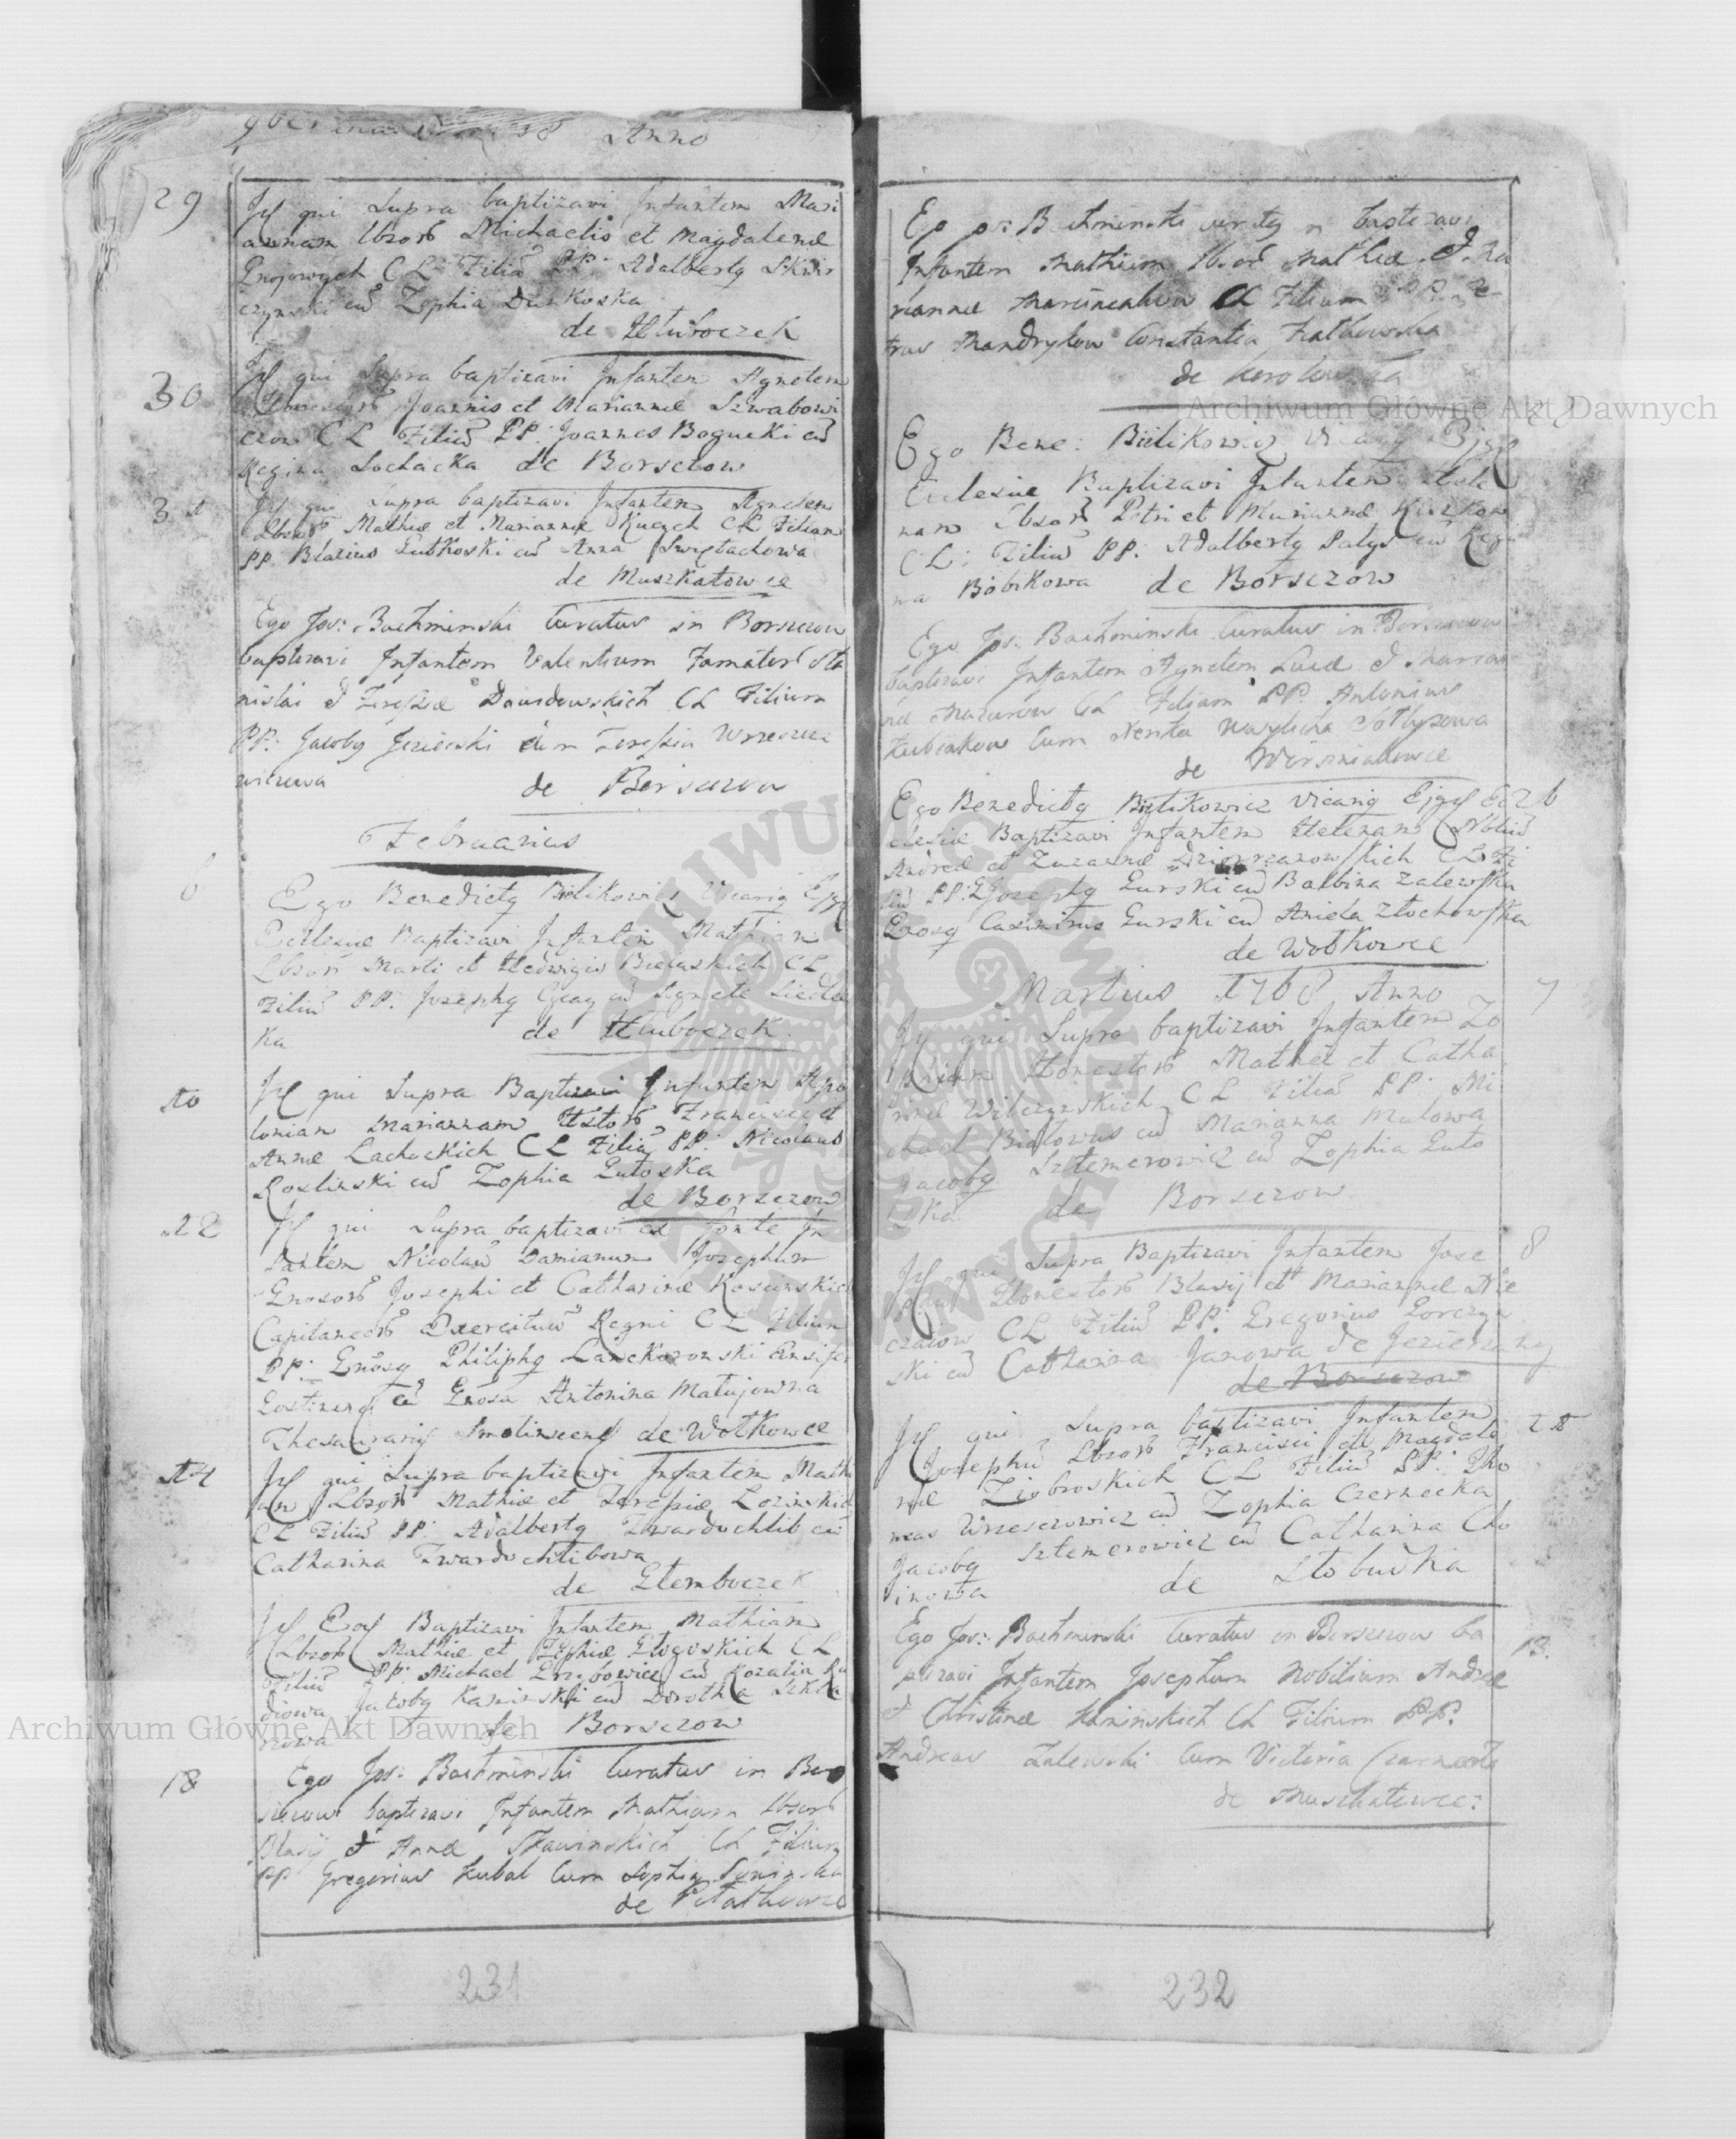 Anno
29
Jd qui Supra baptizavi Infantem Mari
annam Lbzor Michaelis et Magdalenæ
Gnojowych C L Filiã PP: Adalbertg Skwir
czynski cũ Zophia Duskoska
de Hluboczek
30
Jd qui Supra baptizavi Infantem Agnetem
Joannis et Mariannæ Szwabowi
czow C L Filiã PP: Joannes Bogucki cũ
Regina Sochacka de Borsczow
31
Jd qui Supra baptizavi Infantem Agnetem
Lbzor Mathiæ et Mariannæ CL Filiam
PP: Blazius Gutkoski cũ Anna Swiętachowa
de Muszkatowce
Ego Jos: Bachminski Curatus in Borszczow
baptizavi Infantem Valentium Famator Sta
nislai et Teressiæ Dawidowskich CL Filium
PP: Jacobg Jezierski cum Teressia Wrzeszcz
wiczowa de Borszczow
Februarius
6
Ego Benedictg Bielikowicz Vicarig Ejgd
Ecclesiæ Baptizavi Infantem Mathiam
Lbzor Marti et Hedwigis Bielaskich CL
Filiũ PP: Josephg Gray cũ Agnete Siedlec
ka de Hluboczek
10
Jd qui Supra Baptizavi Infantem Apo
loniam Mariannam Hstor Francisci et
Annæ Lachockich C L Filiã PP: Nicolaus
Roslinski cũ Zophia Gutoska
de Borszczow
12
Jd qui Supra baptizavi ex Fonte In
fantem Nicolaũ Damianum Josephum
Gnosor Josephi et Catharinæ Kosinskich
Capitaneor Exercitus Regni C L Filium
PP: Gnosg Philiphg Lanckoronski Ensifer
Gostinensis cũ Gnosa Antonina Matujowna
Thesaurarij Smolinscens de Wołkowce
14
Jd qui Supra baptizavi Infantem Mathi
am Lbzor Mathiæ et Teressiæ Lozinskich
CL Filiũ PP: Adalbertg Twardochlib cũ
Catharina Twardochlibowa
de Glemboczek
Jd Eod Baptizavi Infantem Mathiam
Lbzor Mathiæ et Zophiæ Głogoskich C L
Filiũ PP: Michael cũ Rozalia Ru
diowa Jakobg Kaminski cũ Dorothea Szkla
rzowa de Borszczow
18
Ego Jos: Bachminski Curatus in Bor
szczow baptizavi Infantem Mathiam Lbzor
Blasij et Annæ Sławinskich CL Filium
PP Gregorius Kubal Cum Sophia
de Piłatkowce
231
Ego Jos: Bachminski baptizavi
Infantem Mathium Lbzor Mathiæ et Ma
riannæ CL Filium PP: Pe
trus Mandrykow Constantia
de Korolowka
Ego Bene: Bielikowicz Vicarig Ejgd
Ecclesiæ Baptizavi Infantem Hele
nam Lbzor Petri et Mariannæ
C L: Filiã PP: Adalbertg Patys cũ Regi
na Bobikowa de Borszczow
Ego Jos: Bachminski Curatus in Borszczow
baptizavi Infantem Agnetem Lucæ et Marian
næ Mazurow CL Filiam PP. Antonius
Kubiakow Cum Sołtysowa
de Wierzniakowce
26
Ego Benedictg Bielikowicz Vicarig Ejgd Ec
clesiæ Baptizavi Infantem Helenam Nbliũ
Andreæ et Zuzannæ CL Fi
liã PP: Josephg Gurski cũ Balbina Zalewska
Gnosg Casimirus Gurski cũ Aniela Złochowska
de Wołkowce
Martius 1768 Anno
7
Jd qui Supra baptizavi Infantem Zo
phiam Honestor Mathæi et Catha
rinæ Wilczynskich C L Filiã PP: Mi
chael Białowus cũ Marianna Mulowa
Jacobg Sztemerowicz cũ Zophia Guto
ska de Borszczow
8
Jd qui Supra Baptizavi Infantem Jose
phum Honestor Blasij et Mariannæ Nie
czaiow C L Filiũ PP: Gregorius Gorczyn
ski cũ Catharina Janowa de Jezierzany
de Borszczow
Jd qui Supra baptizavi Infantem
Josephũ Lbzor Francisci et Magdale
næ Ziobroskich C L Filiũ PP: Tho
meas Wrzesczowicz cũ Zophia Czernecka
Jacobg Sztemerowicz cũ Catharina Cho
inoska de Słobudka
13.
Ego Jos: Bachminski Curatus in Borszczow ba
ptizavi Infantem Josephum Nobilium Andreæ
et Christinæ Kaminskich CL Filium PP:
Andreas Zalewski Cum Victoria Czarnecka
de Muszkatowce:
232
Archiwum Główne Akt Dawnych
Archiwum Główne Akt Dawnych